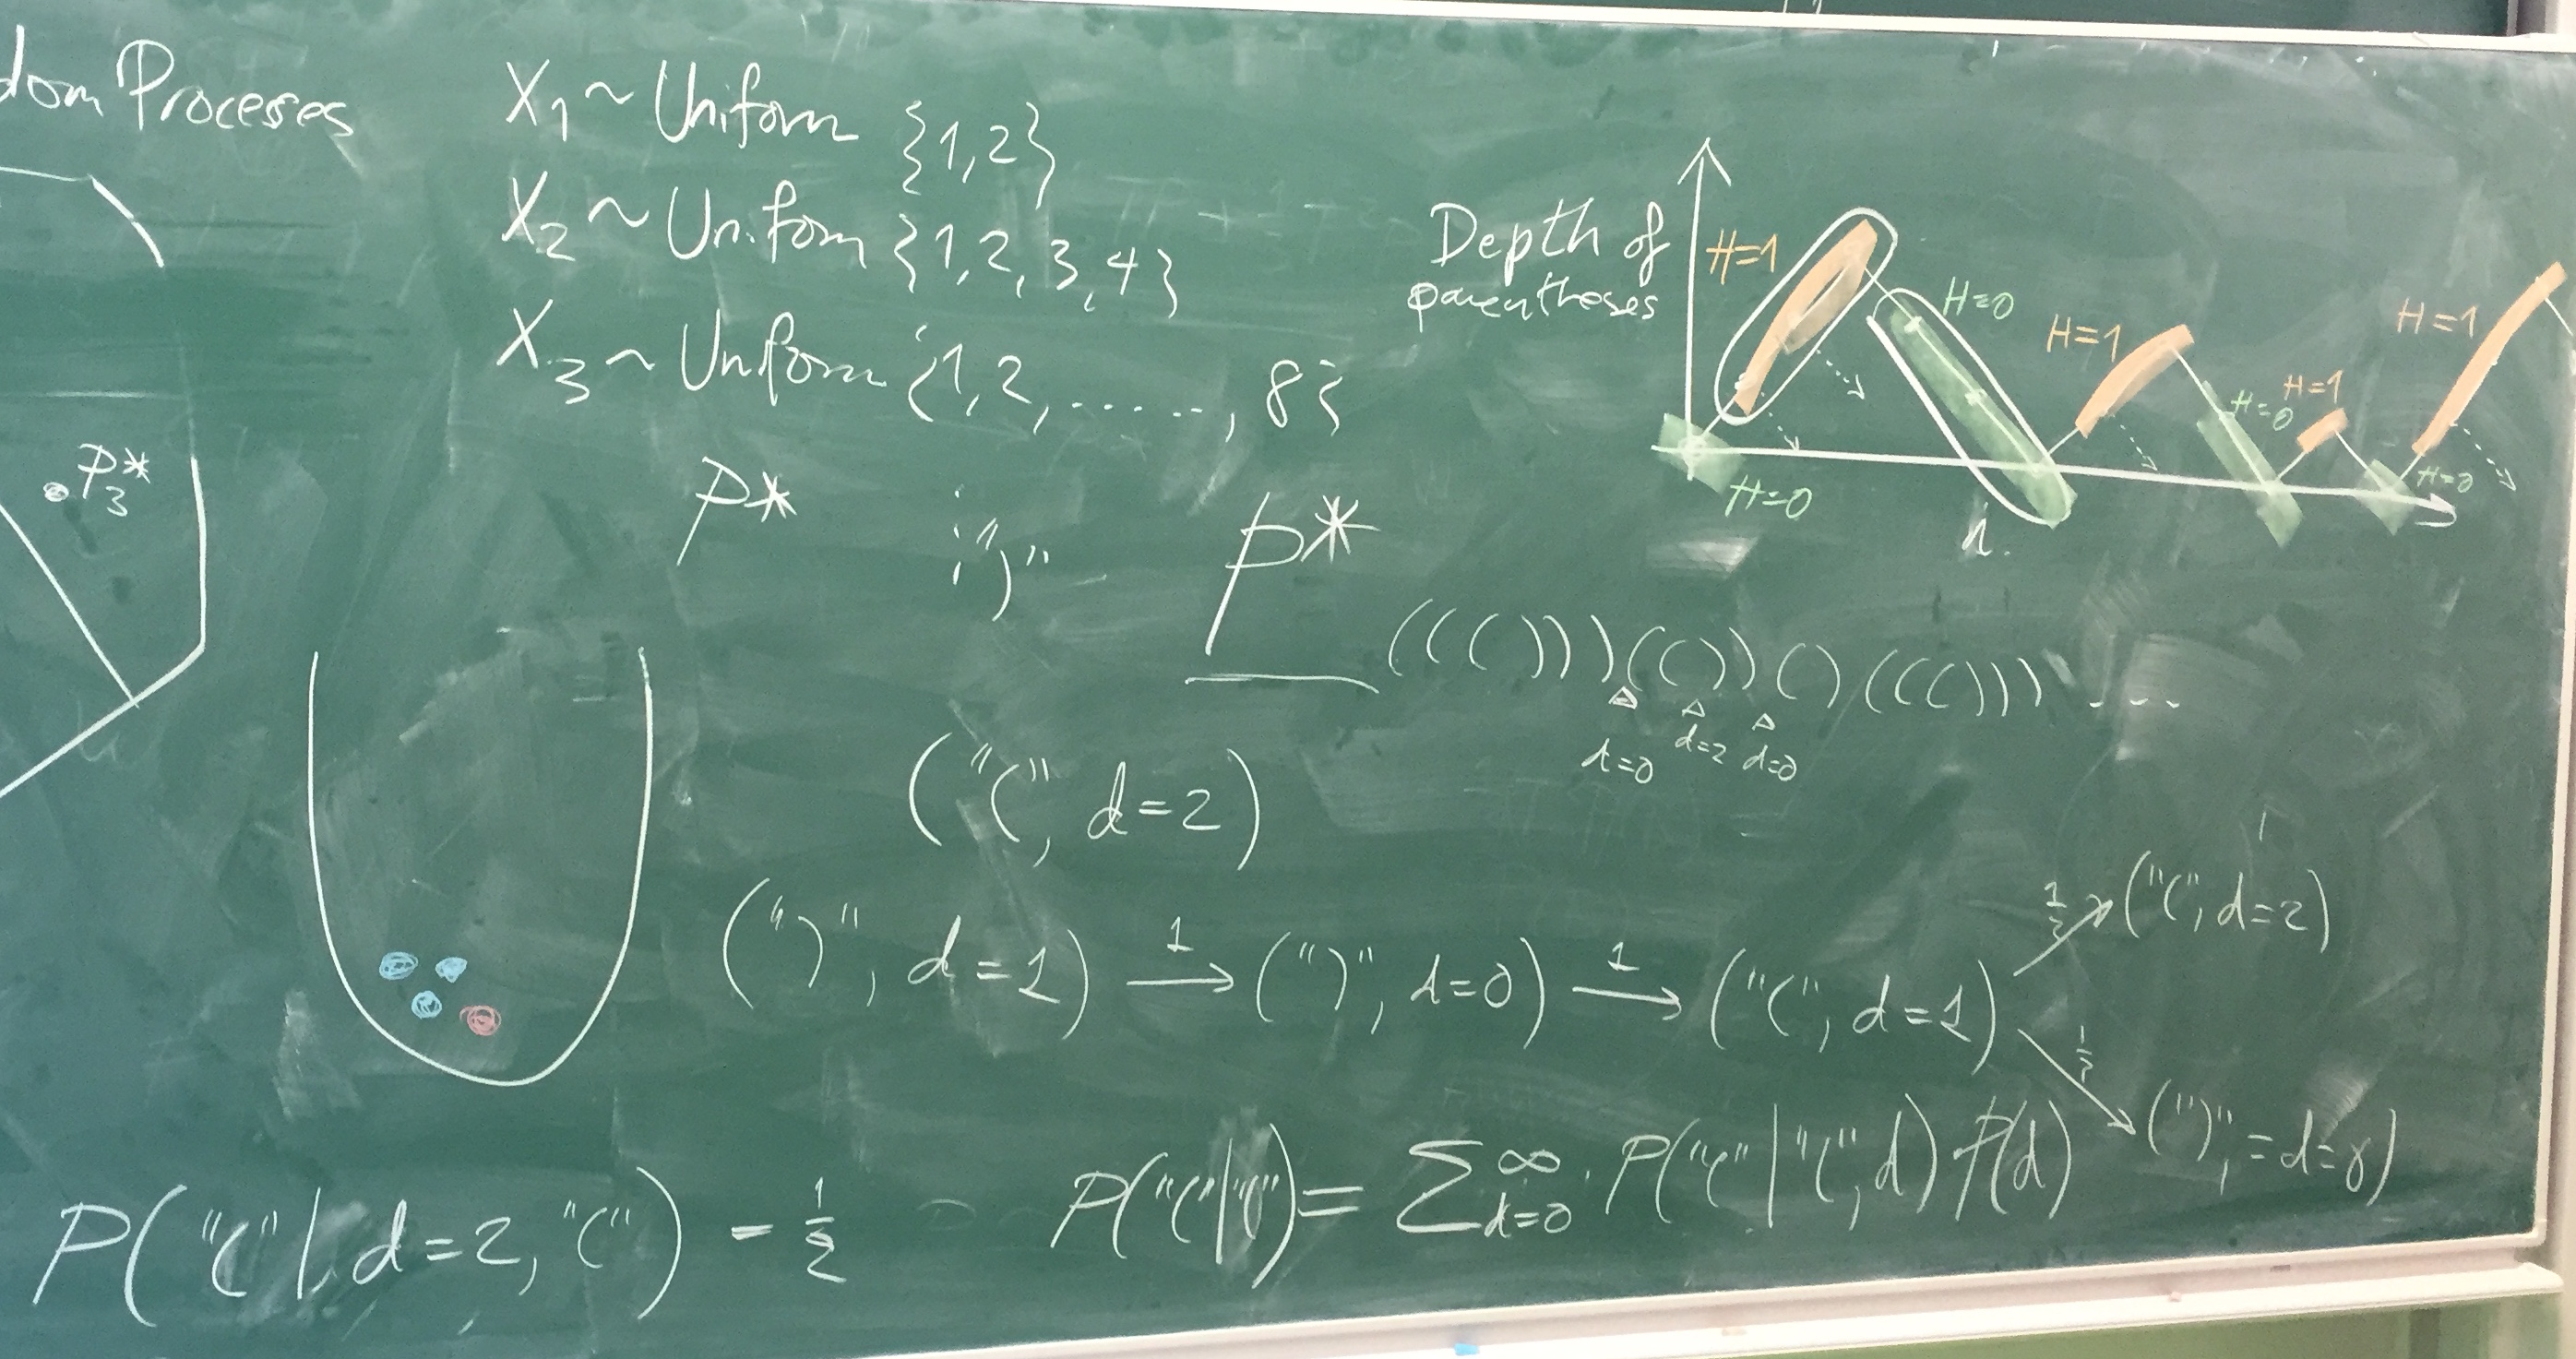 dom Processes
X₁ ~ Uniform {1,2}
X₂ ~ Uniform {1,2,3,4}
X₃ ~ Uniform {1,2,......,8}
P₃*
P*
")"
P*
Depth of
parentheses
H=1
H=0
H=1
H=0
H=1
H=1
H=0
H=0
((()))(())()((()))....
d=0
d=2
d=0
("(", d=2)
(")", d=1) 1→ (")", d=0) 1→ ("(", d=1)
½ ("(", d=2)
(")",=d=0)
P("("|d=2,"(") = ½
P("("|"(") = ∑ ∞ d=0 P("("|"(",d) P(d)